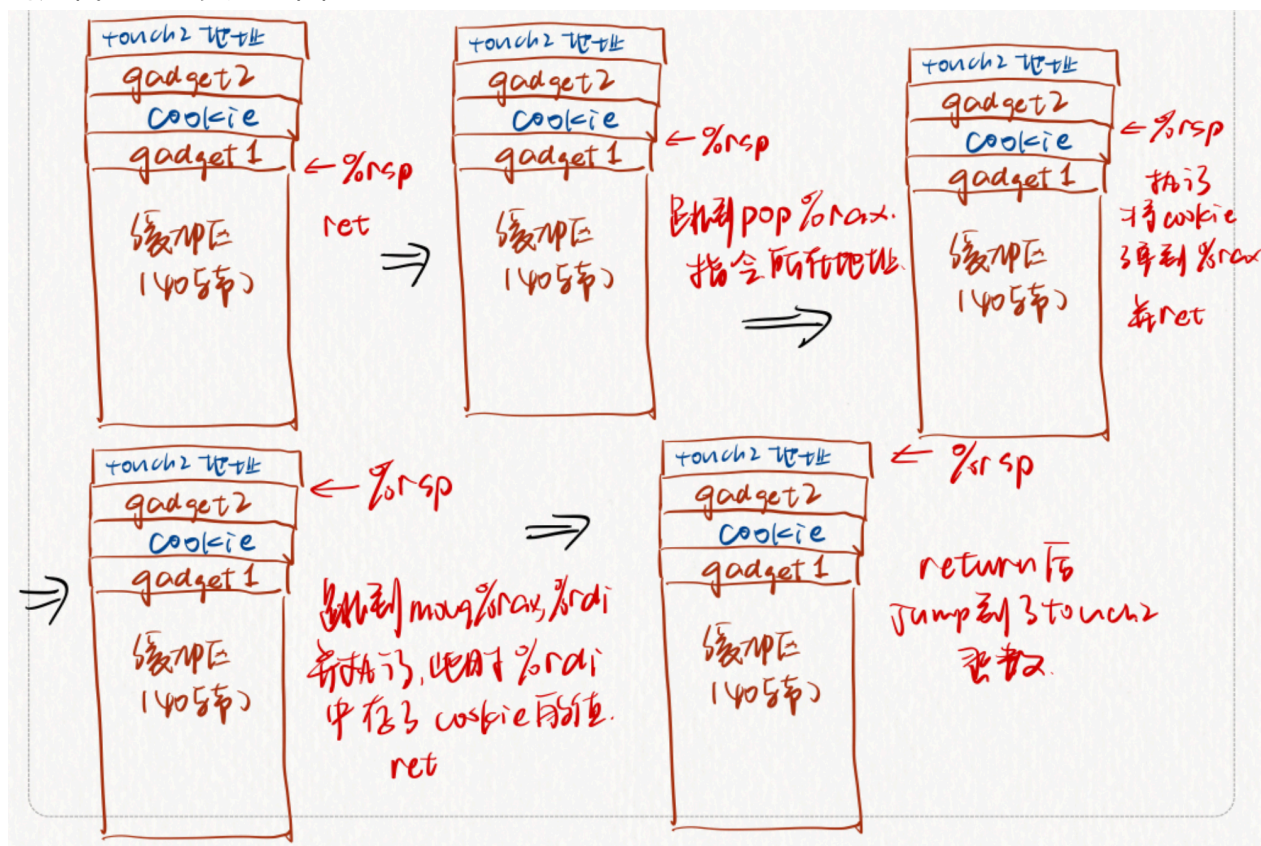 touch2 地址
gadget2
cookie
gadget1
缓冲区
(40字节)
←%rsp
ret
touch2 地址
gadget2
cookie
gadget1
缓冲区
(40字节)
←%rsp
跳到pop %rax.
指令所在地址.
touch2 地址
gadget2
cookie
gadget1
缓冲区
(40字节)
←%rsp
执行
将cookie
弹到%rax
并ret
touch2 地址
gadget2
cookie
gadget1
缓冲区
(40字节)
←%rsp
跳到movq%rax,%rdi
并执行,此时%rdi
中存了cookie的值.
ret
touch2 地址
gadget2
cookie
gadget1
缓冲区
(40字节)
←%rsp
return后
Jump到了touch2
函数.